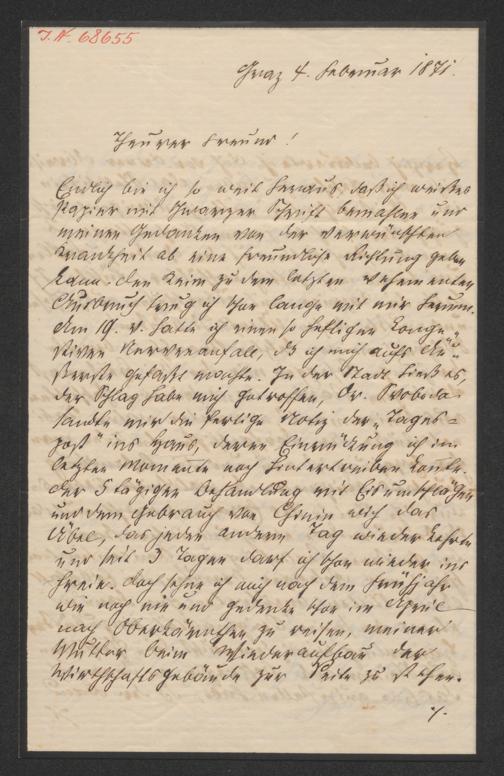 J. N. 68655
Graz 4. Februar 1871.
Theurer Freund!
Endlich bin ich so weit heraus, daß ich weißes
Papier mit schwarzer Schrift bemahlen und
meinen Gedanken von der verwünschten
Krankheit ab eine freundliche Richtung geben
kann. Den Keim zu dem letzten vehementen
Ausbruch trug ich schon lange mit mir herum.
Am 19. v. hatte ich einen so heftigen konge-
stiven Nervenanfall, daß ich mich aufs Äu-
ßerste gefaßt machte. In der Stadt hieß es,
der Schlag habe mich getroffen, Dr. Svoboda
sandte mir die fertige Notiz der "Tages-
post" ins Haus, deren Einrückung ich im
letzten Momente noch hintertreiben konnte.
Der 5 tägigen Behandlung mit Eisumschlägen
und dem Gebrauch von Chinin wich das
Übel, das jeden andern Tag wieder kehrte
und seit 3 Tagen darf ich schon wieder ins
Freie. Doch sehne ich mich nach dem Frühjahr
wie noch nie und gedenke schon im April
nach Oberkärnthen zu reisen, meiner
Mutter beim Wiederaufbau der
Wirthschaftsgebäude zur Seite zu stehen.
./.